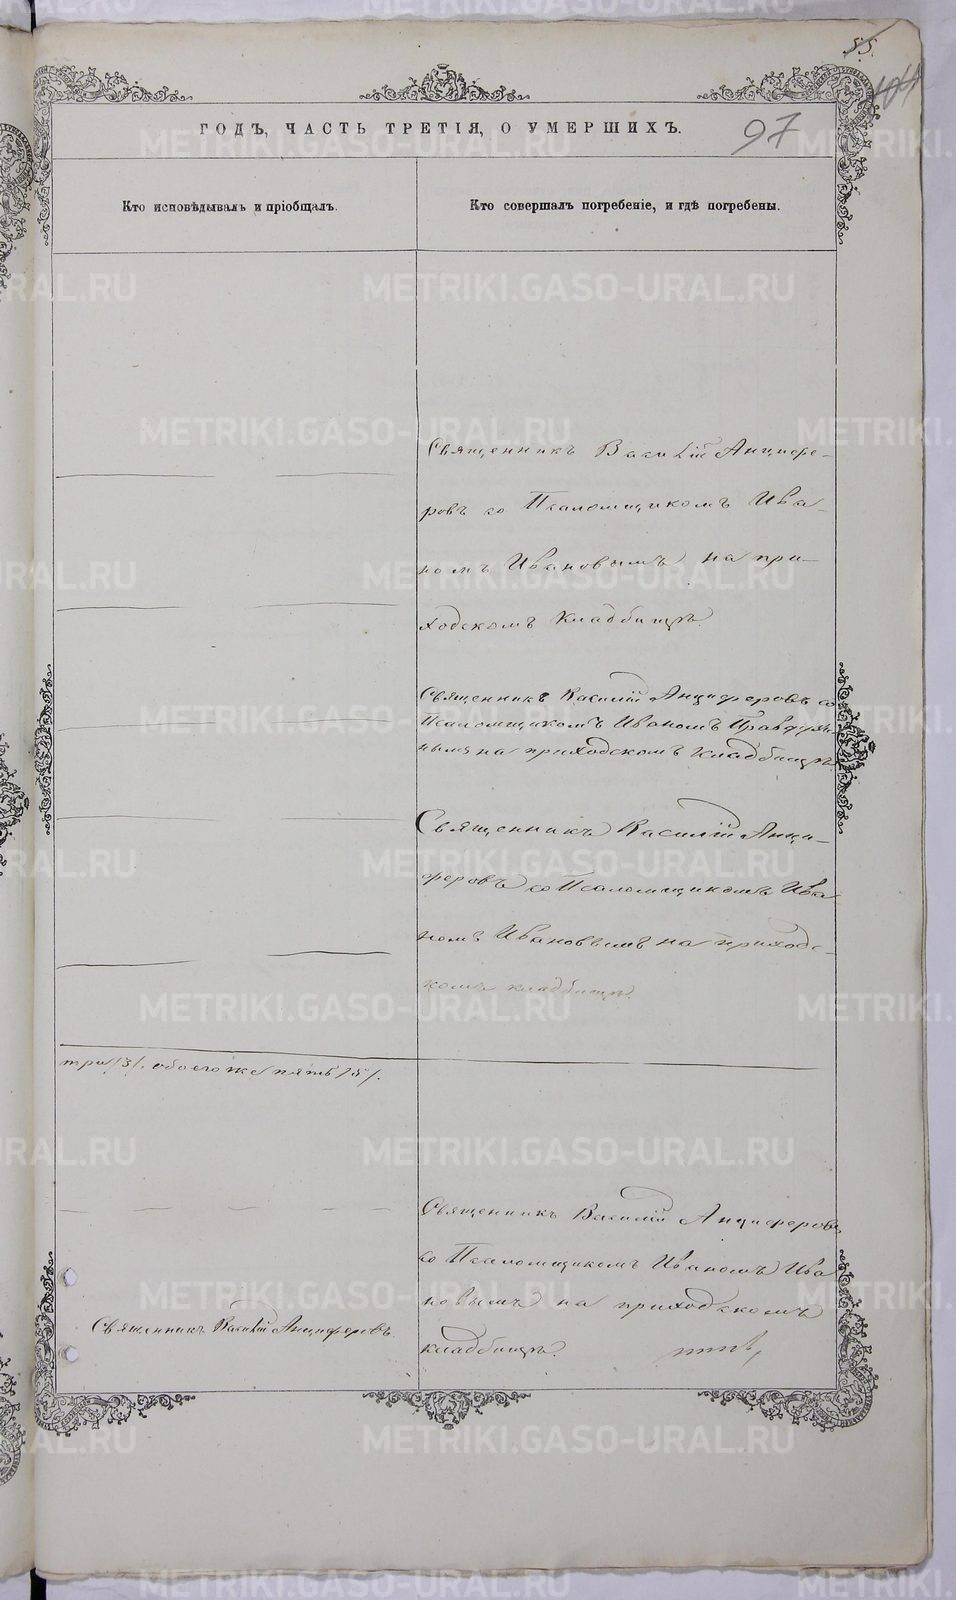 55.
104
ГОДЪ, ЧАСТЬ ТРЕТІЯ, О УМЕРШИХЪ.
97
Кто исповѣдывалъ и пріобщалъ.
Кто совершалъ погребеніе, и гдѣ погребены.
Священникъ Василій Анцифе-
ровъ со Псаломщикомъ Ива-
номъ Ивановымъ на при-
ходскомъ Кладбищѣ.
Священникъ Василій Анциферовъ со
Псаломщикомъ Иваномъ
нымъ на приходскомъ кладбищѣ.
Священникъ Василій Анци-
феровъ со Псаломщикомъ Ива
номъ Ивановымъ на приход-
скомъ кладбищѣ.
три /3/. обоего же пять /5/.
Священникъ Василій Анциферовъ
со Псаломщикомъ Иваномъ Ива
новымъ на приходскомъ
кладбищѣ.
Священникъ Василій Анциферовъ.
METRIKI.GASO-URAL.RU